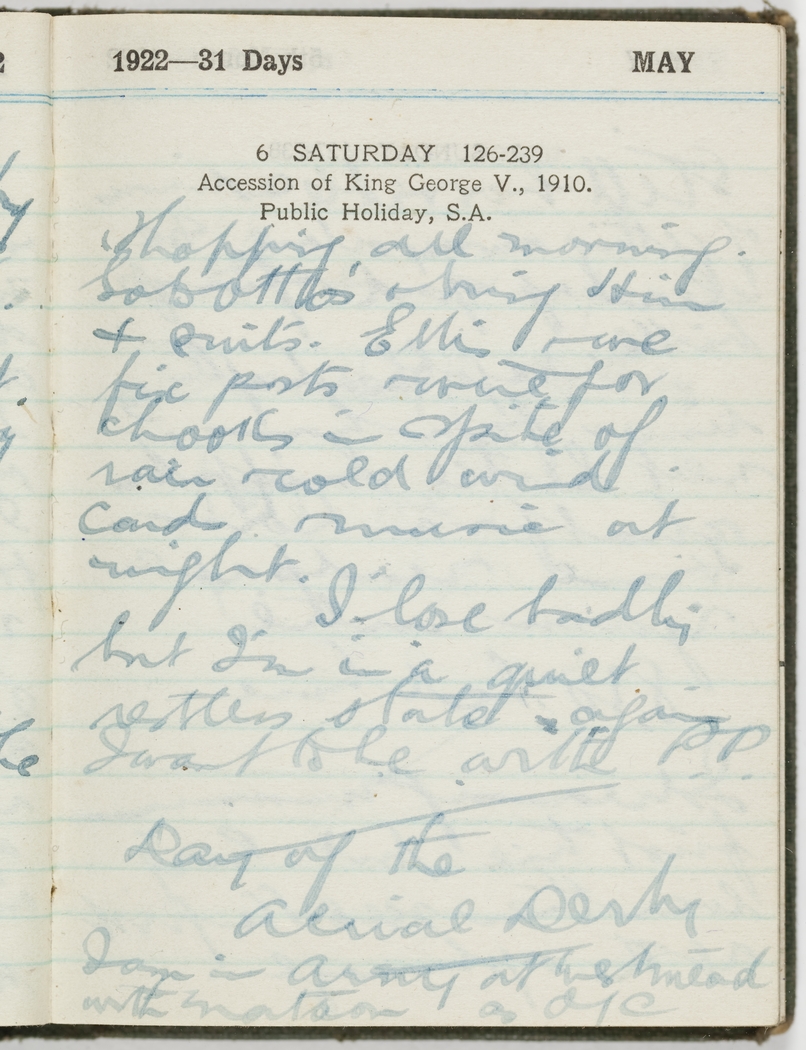 1922—31 Days MAY
6 SATURDAY 126-239
Accession of King George V., 1910.
Public Holiday, S.A.
Shopping all morning.
bring Him
& suits. Ellis we
fix posts & wire for
chooks in spite of
rain & cold wind.
Cards & music at
night.
I lose badly
but I'm in a quiet
restless state & again
I want to be with PP.
Day of the
Aerial Derby
I am in Army at Westmead
with Matson as O/C